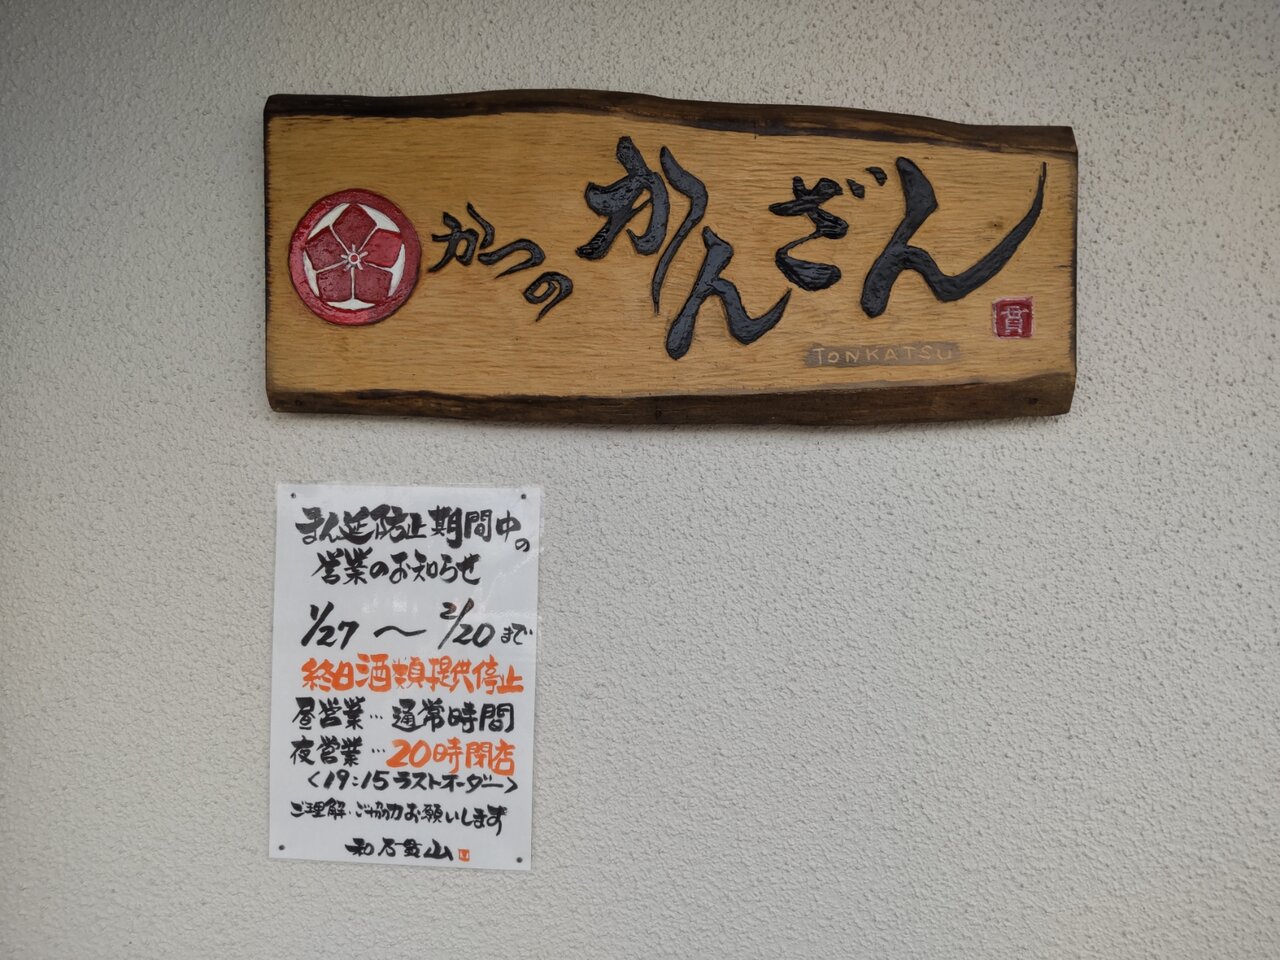 かつの
かんざん
TONKATSU
貫
まん延防止期間中の
営業のお知らせ
1/27 〜 2/20まで
終日酒類提供停止
昼営業…通常時間
夜営業…20時閉店
<19:15ラストオーダー>
ご理解・ご協力お願いします